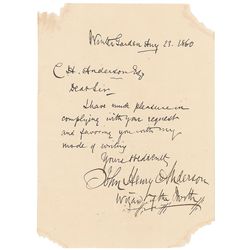 Winter Garden Aug 23. 1860
C. H. Anderson Esq
Dear Sir
I have much pleasure in
complying with your request
and favoring you with my
mode of writing
Yours
John Henry Anderson
Wizard of the North